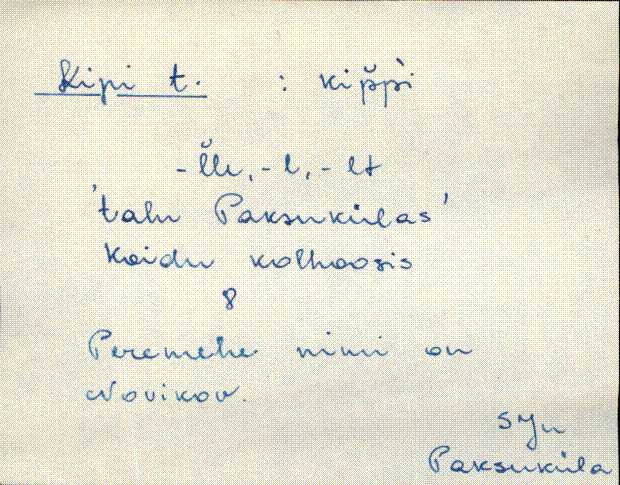 Kipi t. : kip̆pì
-l̆le, -l, -lt
'talu Paksukülas'
Koidu kolhoosis
8
Peremehe nimi on
Novikov.
SJn
Paksuküla